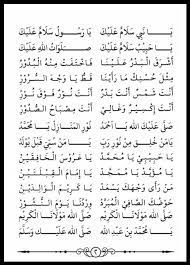 يَا نَبِي سَلَامٌ عَلَيْكَ يَا رَسُولْ سَلَامٌ عَلَيْكَ
يَا حَبِيبْ سَلَامٌ عَلَيْكَ صَلَوَاتُ اللهِ عَلَيْكَ
أَشْرَقَ الْبَدْرُ عَلَيْنَا فَاخْتَفَتْ مِنْهُ الْبُدُورُ
مِثْلَ حُسْنِكَ مَا رَأَيْنَا قَطُّ يَا وَجْهَ السُّرُورِ
أَنْتَ شَمْسٌ أَنْتَ بَدْرٌ أَنْتَ نُورٌ فَوْقَ نُورِ
أَنْتَ إِكْسِيرٌ وَغَالِي أَنْتَ مِصْبَاحُ الصُّدُورِ
صَلَّى عَلَيْكَ اللهُ يَا أَحْمَدْ نُورَ الْمَنَازِلِ يَا مُحَمَّدْ
يَامَنْ خُلِقَ مِنْ نُورِ رَبّ يَا مَنْ قَبْلَ يُولَدْ
يَا حَبِيبِي يَا مُحَمَّدْ يَا عَرُوسَ الْخَافِقَيْنِ
يَا مُؤَيَّدْ يَا مُمَجَّدْ يَا إِمَامَ الْقِبْلَتَيْنِ
مَنْ رَأَى وَجْهَكَ يَسْعَدْ يَا كَرِيمَ الْوَالِدَيْنِ
حَوْضُكَ الصَّافِي الْمُبَرَّدْ وِرْدُنَا يَوْمَ النُّشُورِ
صَلَّى اللهُ عَلَى مَوْلَانَا الْكَرِيمْ صَلَّى اللهُ عَلَى مَوْلَانَا الْكَرِيمْ
يَا مُحَمَّدْ بِنْ عَبْدِ اللهِ صَلَّى اللهُ عَلَيْكَ وَسَلَّمْ